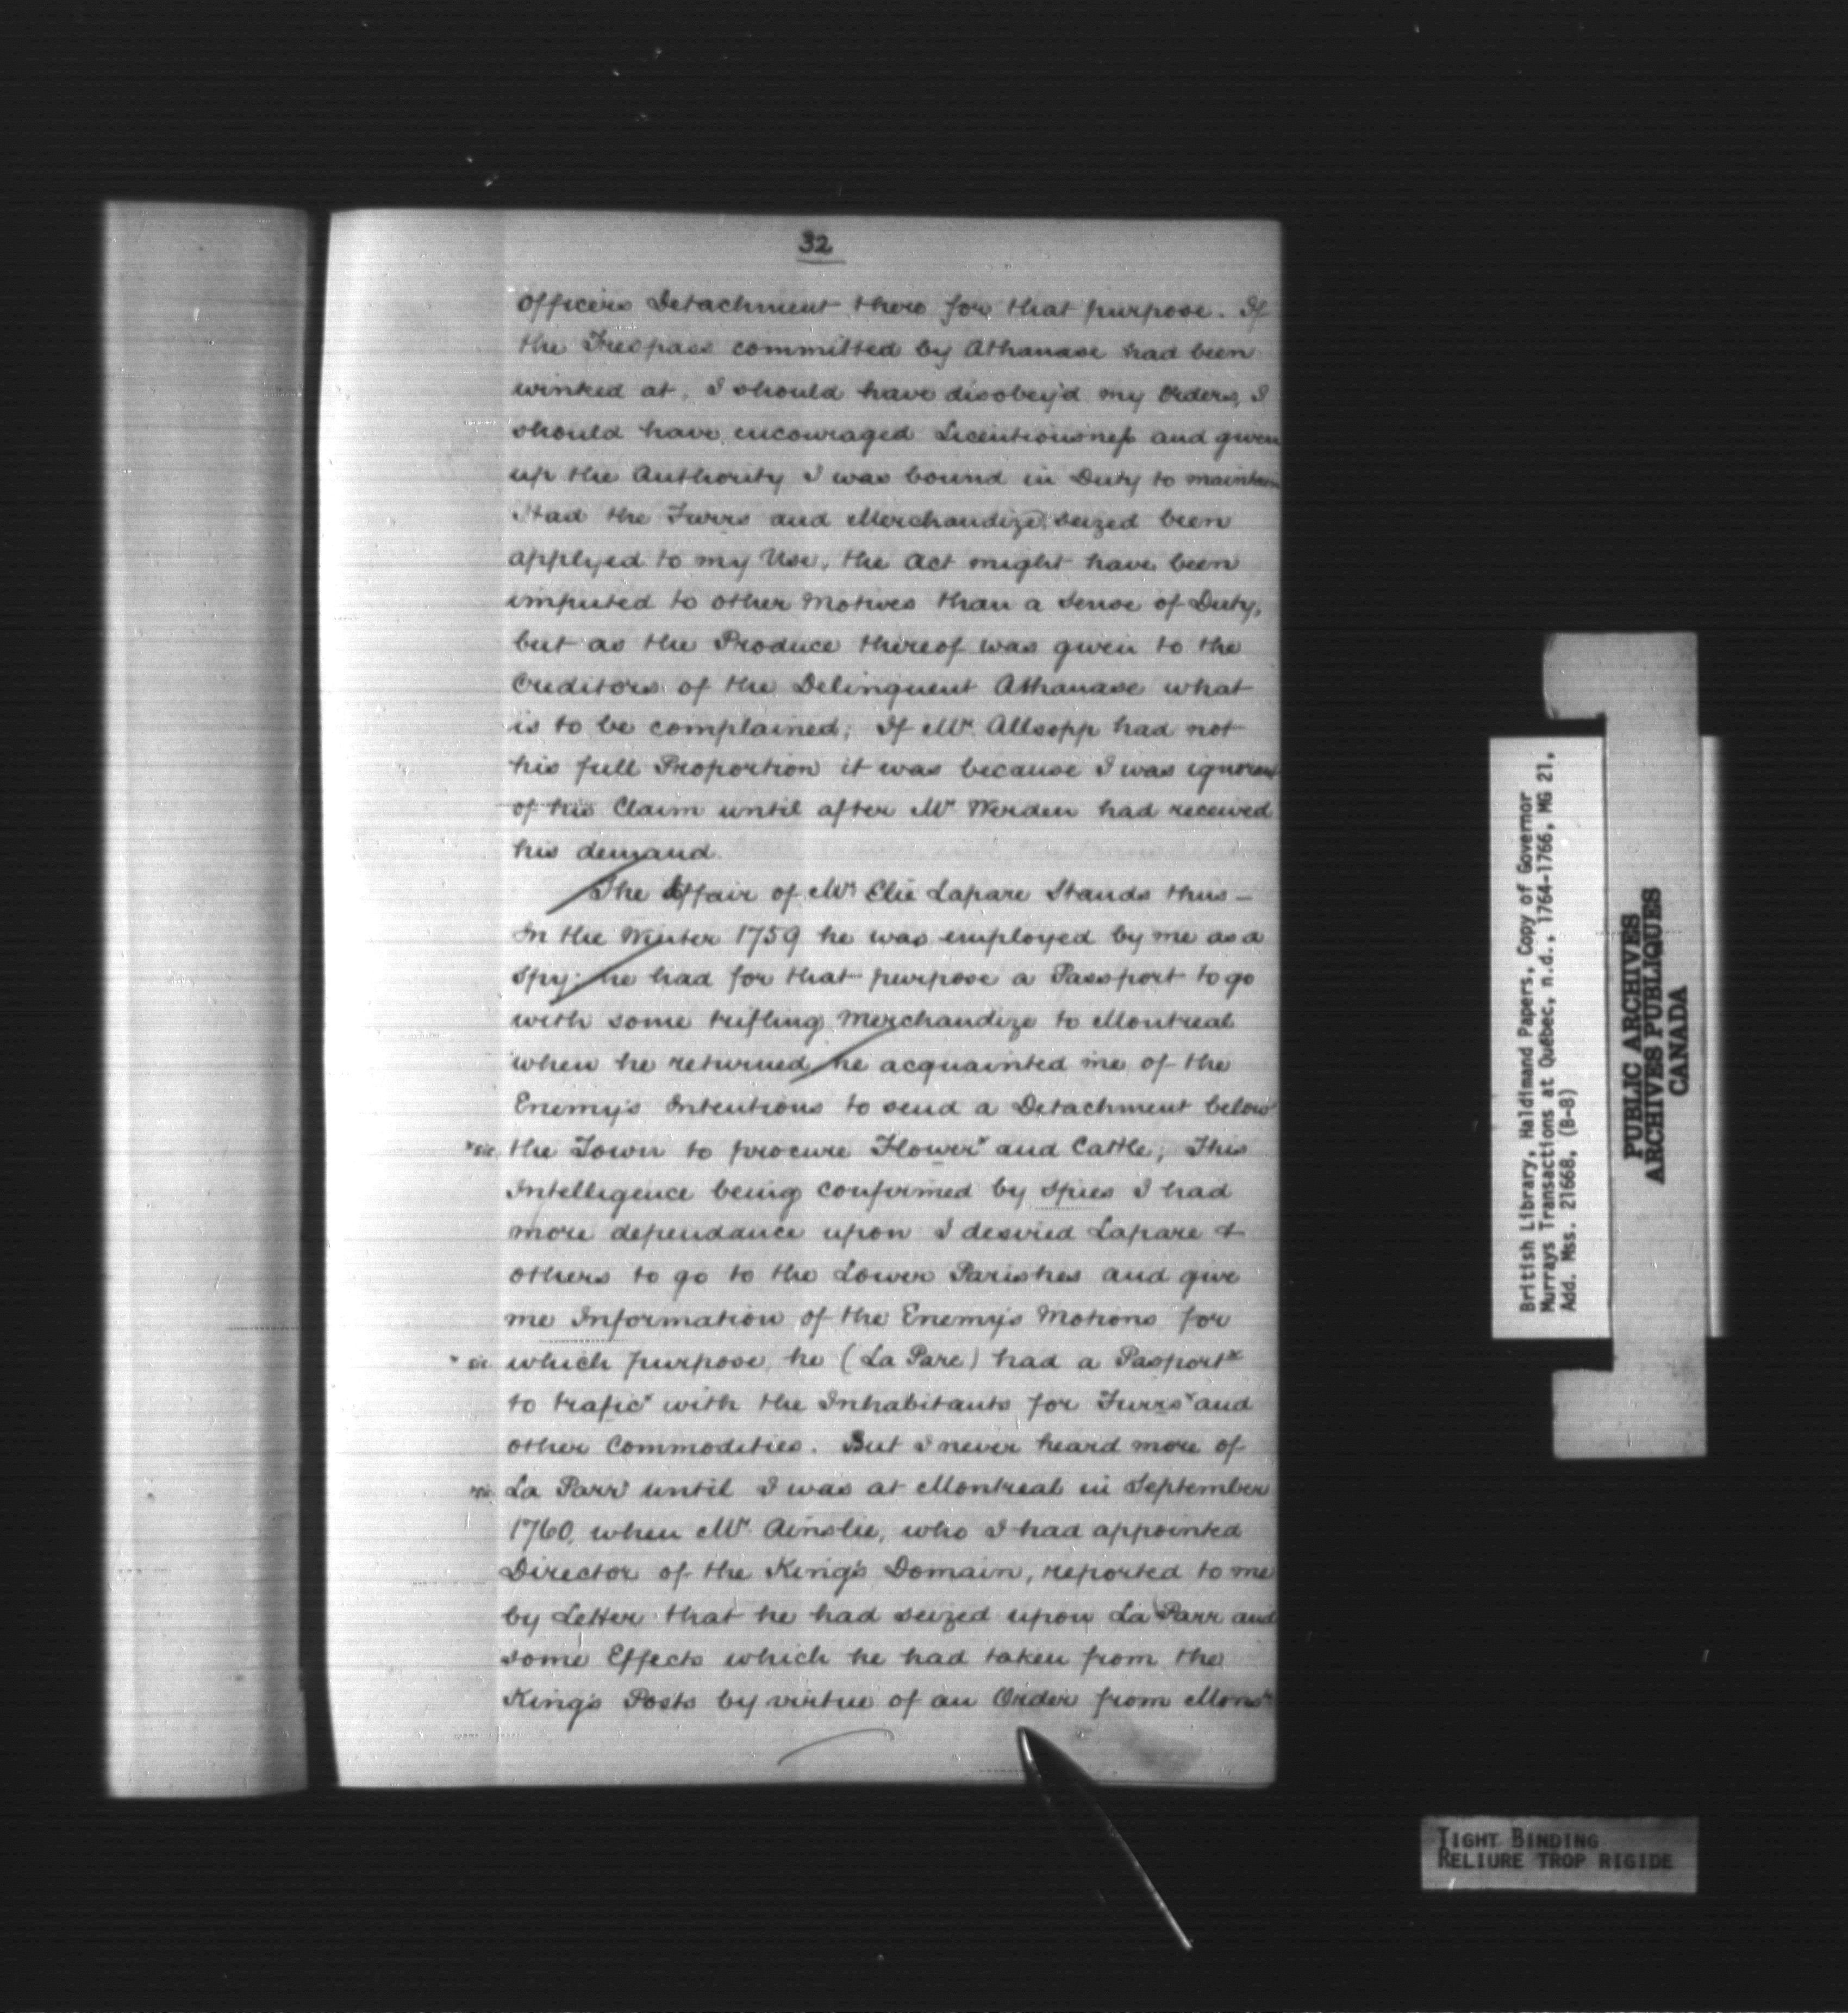 32
Officers Detachment there for that purpose. If
the Trespass committed by Athanase had been
winked at, I should have disobey'd my Orders, I
should have encouraged Licentiousness and given
up the Authority I was bound in Duty to maintain
Had the Furrs and Merchandize seized been
applyed to my Use, the Act might have been
imputed to other Motives than a Sense of Duty,
but as the Produce thereof was given to the
Creditors of the Delinquent Athanase what
is to be complained; If Mr. Allsopp had not
his full Proportion it was because I was ignorant
of his Claim until after Mr Werden had received
his demand.
The Affair of Mr Elie Lapare Stands thus —
In the Winter 1759 he was employed by me as a
Spy; he had for that purpose a Passport to go
with some trifling Merchandize to Montreal
when he returned he acquainted me of the
Enemy's Intentions to send a Detachment below
*sic. the Town to procure Flower* and Cattle; This
Intelligence being confirmed by Spies I had
more dependance upon I desired Lapare &
others to go to the Lower Parishes and give
me Information of the Enemy's Motions for
* sic. which purpose he (La Pare) had a Pasport*
to trafic* with the Inhabitants for Furrs* and
other Commodities. But I never heard more of
*sic. La Parr* until I was at Montreal in September
1760, when Mr. Ainslie, who I had appointed
Director of the King's Domain, reported to me
by Letter that he had seized upon La Parr and
some Effects which he had taken from the
King's Posts by virtue of an Order from Monsr
British Library, Haldimand Papers, Copy of Governor
Murrays Transactions at Québec, n.d., 1764-1766, MG 21,
Add. Mss. 21668, (B-8)
PUBLIC ARCHIVES
ARCHIVES PUBLIQUES
CANADA
TIGHT BINDING
RELIURE TROP RIGIDE